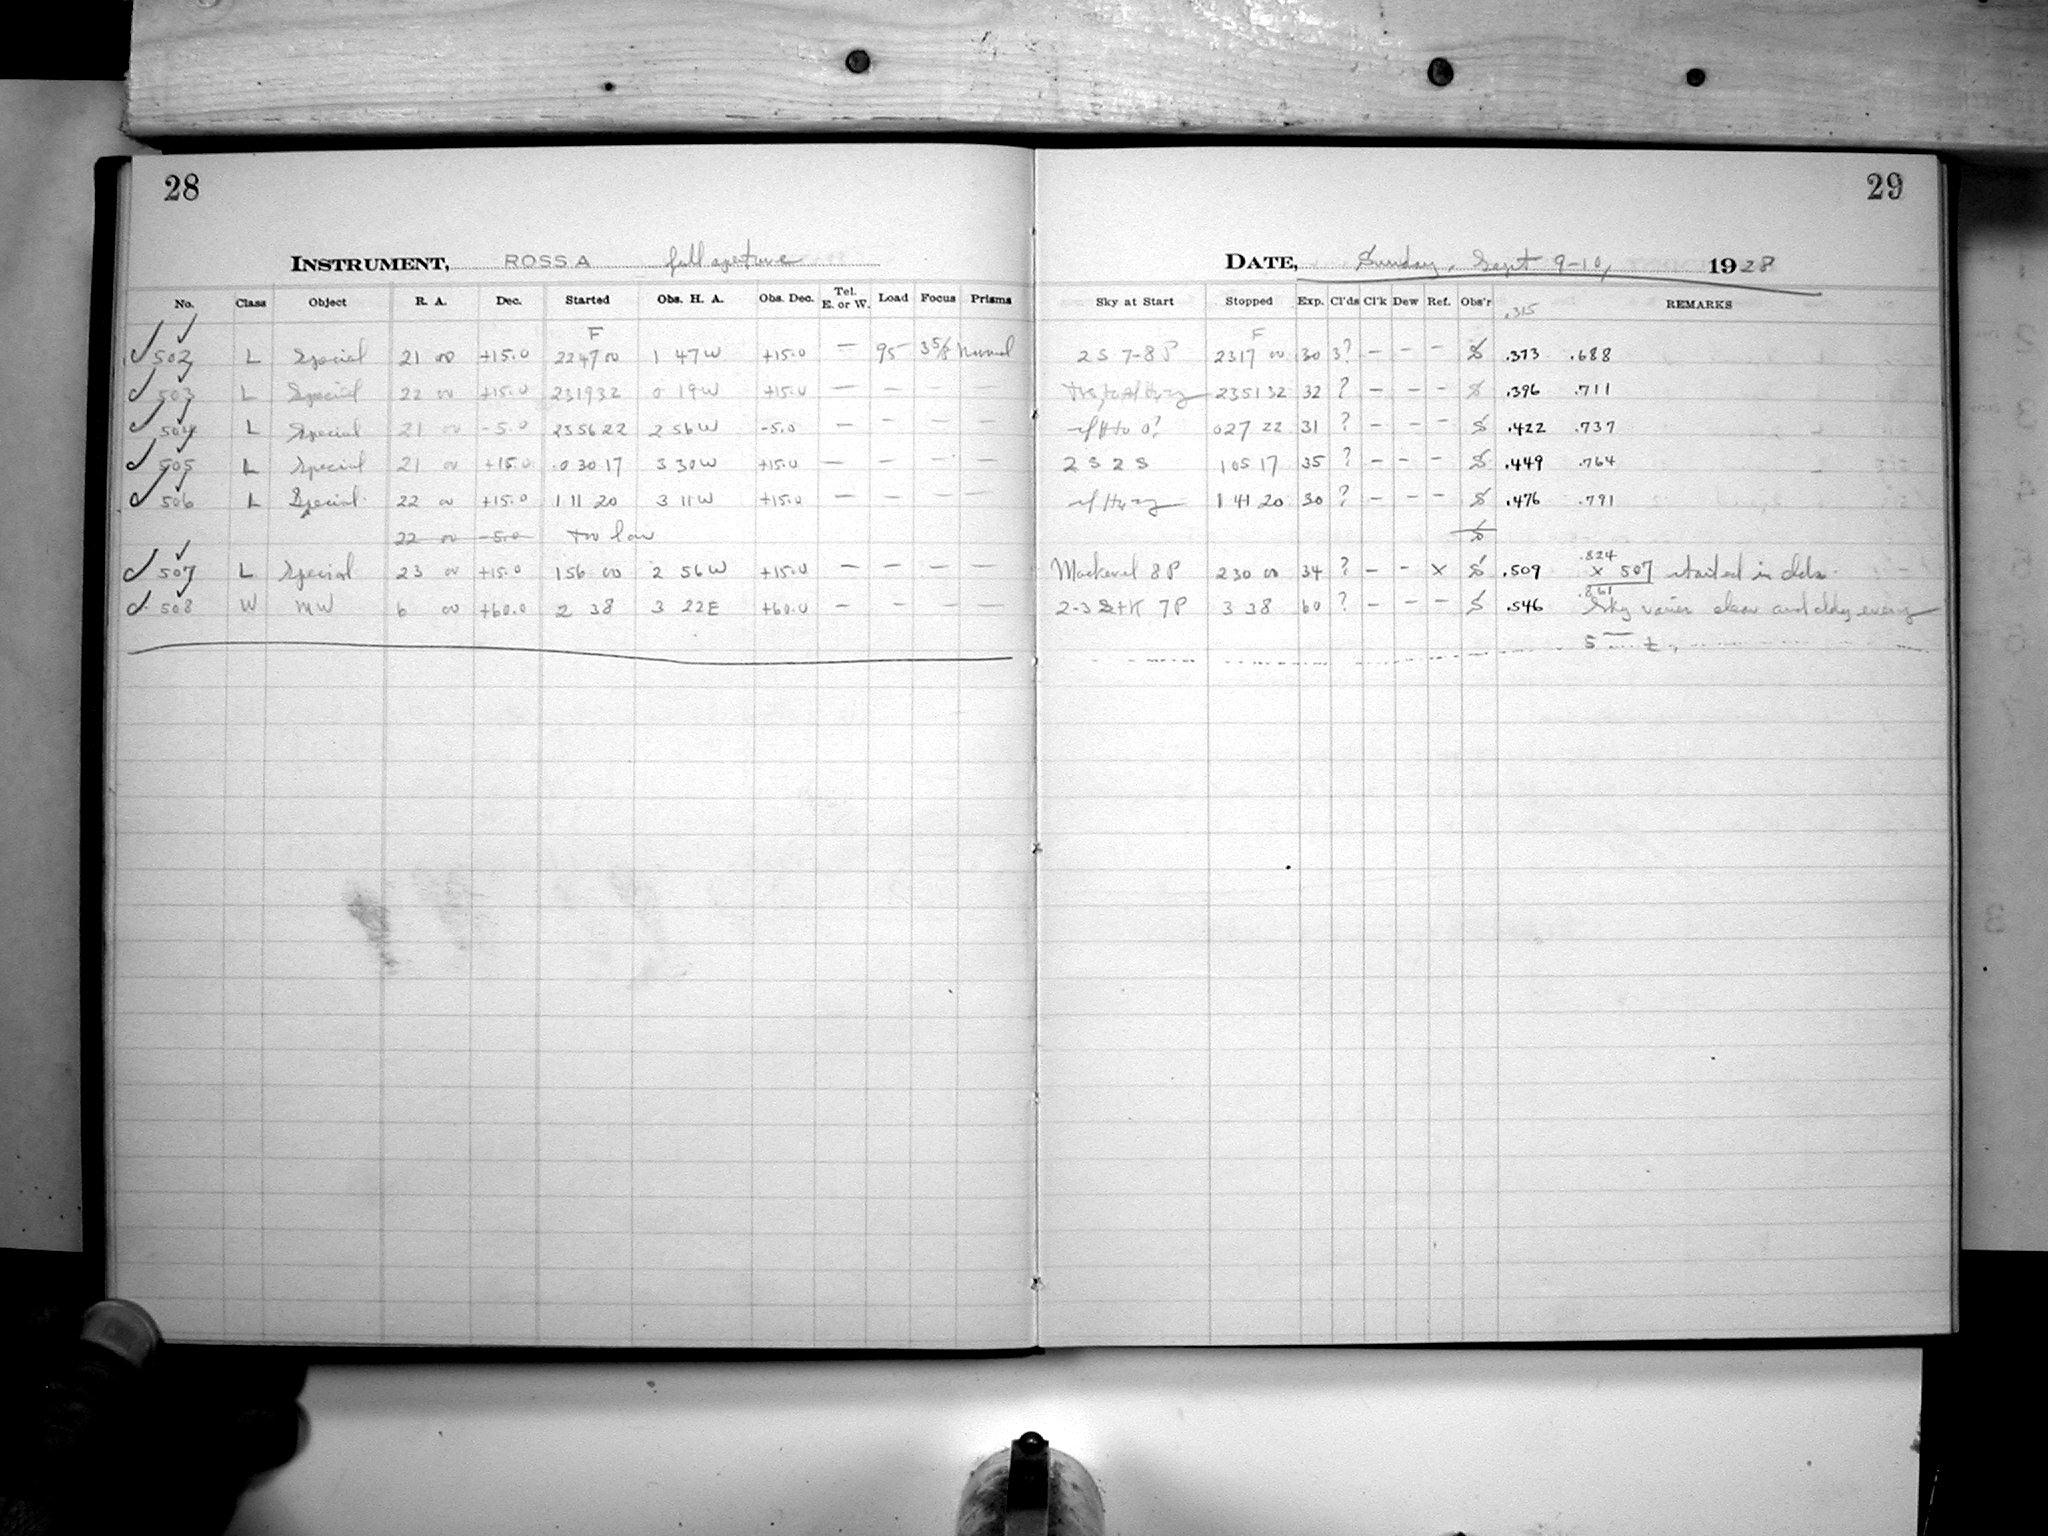 28
INSTRUMENT, ROSS A full aperture
No. Class Object R. A. Dec. Started Obs. H. A. Obs. Dec. Tel. E. or W. Load Focus Prisms
F
502 L Special 21 00 +15.0 22 47 00 1 47 W +15.0 — 95 3 5/8 Normal
503 L Special 22 00 +15.0 23 19 32 0 19 W +15.0 — — — —
504 L Special 21 00 -5.0 23 56 22 2 56 W -5.0 — — — —
505 L Special 21 00 +15.0 0 30 17 3 30 W +15.0 — — — —
506 L Special 22 00 +15.0 1 11 20 3 11 W +15.0 — — — —
22 00 -5.0 too low
507 L Special 23 00 +15.0 1 56 00 2 56 W +15.0 — — — —
508 W MW 6 00 +60.0 2 38 3 22 E +60.0 — — — —
29
DATE, Sunday, Sept 9-10, 1928
Sky at Start Stopped Exp. Cl'ds Cl'k Dew Ref. Obs'r REMARKS
.315
F
2 S 7-8 P 23 17 00 30 3? — — — .373 .688
23 51 32 32 ? — — — .396 .711
0 27 22 31 ? — — — .422 .737
2 S 2 S 1 05 17 35 ? — — — .449 .764
1 41 20 30 ? — — — .476 .791
Mackerel 8 P 2 30 00 34 ? — — x .509 .824 x 507 started in clds.
2-3 S+K 7 P 3 38 60 ? — — — .546 .861 Sky varies clear and cldy every
5